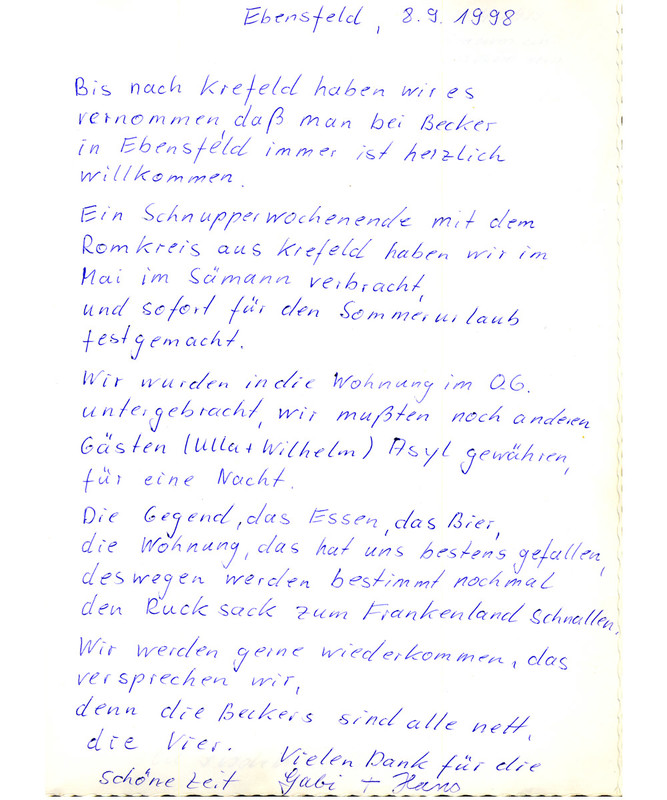 Ebensfeld, 8.9.1998
Bis nach Krefeld haben wir es
vernommen, daß man bei Becker
in Ebensfeld immer ist herzlich
willkommen.
Ein Schnupperwochenende mit dem
Romkreis aus Krefeld haben wir im
Mai im Sämann verbracht,
und sofort für den Sommerurlaub
festgemacht.
Wir wurden in die Wohnung im O.G.
untergebracht, wir mußten noch anderen
Gästen (Ulla + Wilhelm) Asyl gewähren,
für eine Nacht.
Die Gegend, das Essen, das Bier,
die Wohnung, das hat uns bestens gefallen,
deswegen werden bestimmt nochmal
den Rucksack zum Frankenland schnallen.
Wir werden gerne wiederkommen, das
versprechen wir,
denn die Beckers sind alle nett,
die Vier.
Vielen Dank für die
schöne Zeit Gabi + Hans